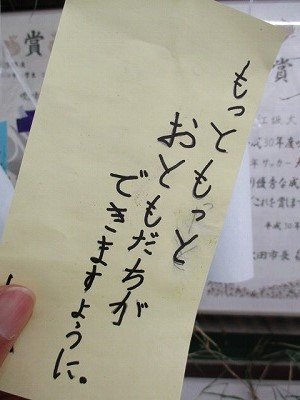 もっともっと
おともだちが
できますように。
賞
賞
平成30年度
サッカー
優秀な成
これを賞しま
平成30年
田市長